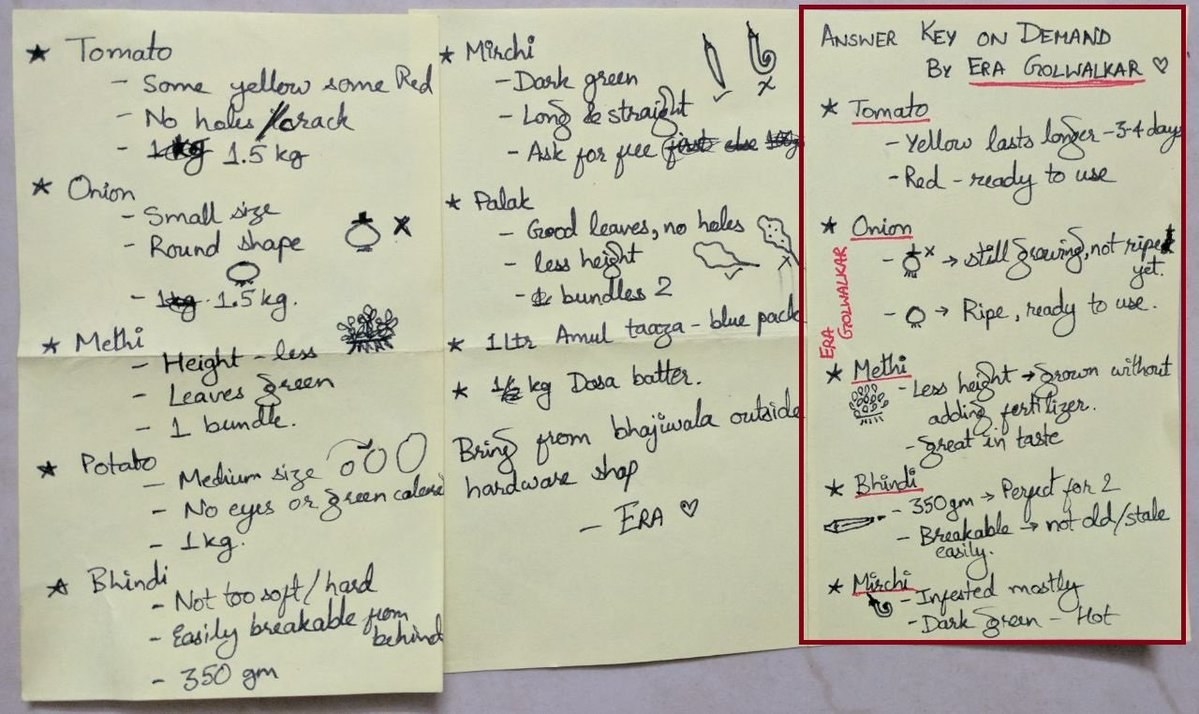 ★ Tomato
- Some yellow some Red
- No holes / crack
- 1kg 1.5 kg
★ Onion
- Small size
- Round shape
- 1kg 1.5 kg.
★ Methi
- Height - less
- Leaves green
- 1 bundle.
★ Potato
- Medium size
- No eyes or green colored
- 1 kg.
★ Bhindi
- Not too soft / hard
- Easily breakable from
behind
- 350 gm
★ Mirchi
- Dark green
- Long & straight
- Ask for free first else 100g
★ Palak
- Good leaves, no holes
- less height
- bundles 2
★ 1 Ltr Amul taaza - blue pack
★ 1/2 kg Dosa batter.
Bring from bhajiwala outside
hardware shop
- ERA ♡
ANSWER KEY ON DEMAND
BY ERA GOLWALKAR ♡
★ Tomato
- Yellow lasts longer - 3-4 days
- Red - ready to use
★ Onion
- x → still growing, not ripe
yet.
- → Ripe, ready to use.
ERA
GOLWALKAR
★ Methi
- Less height → grown without
adding fertilizer.
- great in taste
★ Bhindi
- 350gm → Perfect for 2
- Breakable → not old/stale
easily.
★ Mirchi
- Infested mostly
- Dark green - Hot